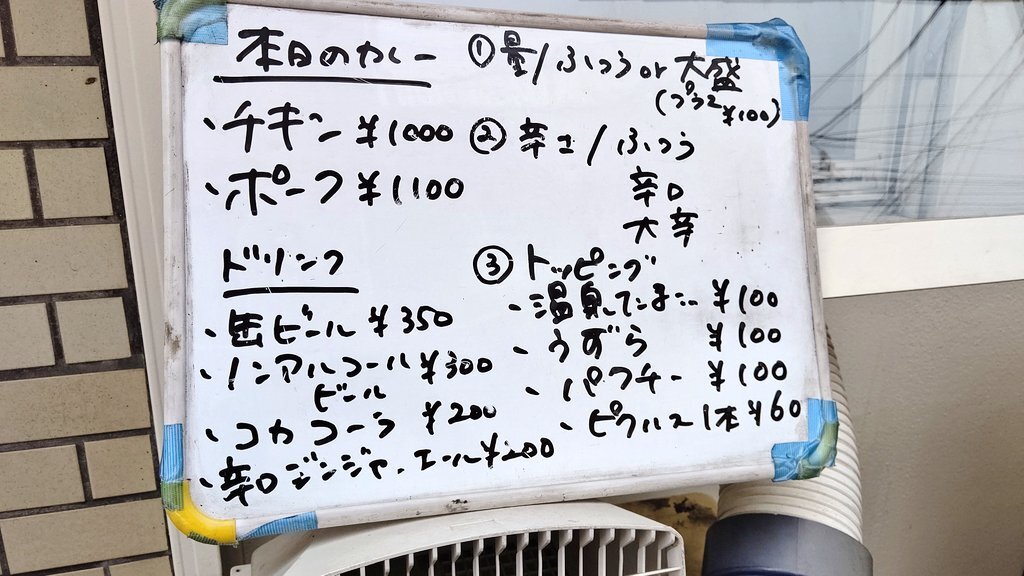 本日のカレー
・チキン ¥1000
・ポーク ¥1100
ドリンク
・缶ビール ¥350
・ノンアルコール ¥300
ビール
・コカコーラ ¥200
・辛口ジンジャーエール ¥200
①量/ふつう or 大盛
(プラス¥100)
②辛さ/ふつう
辛口
大辛
③トッピング
・温泉たまご ¥100
・うずら ¥100
・パクチー ¥100
・ピクルス1本 ¥60